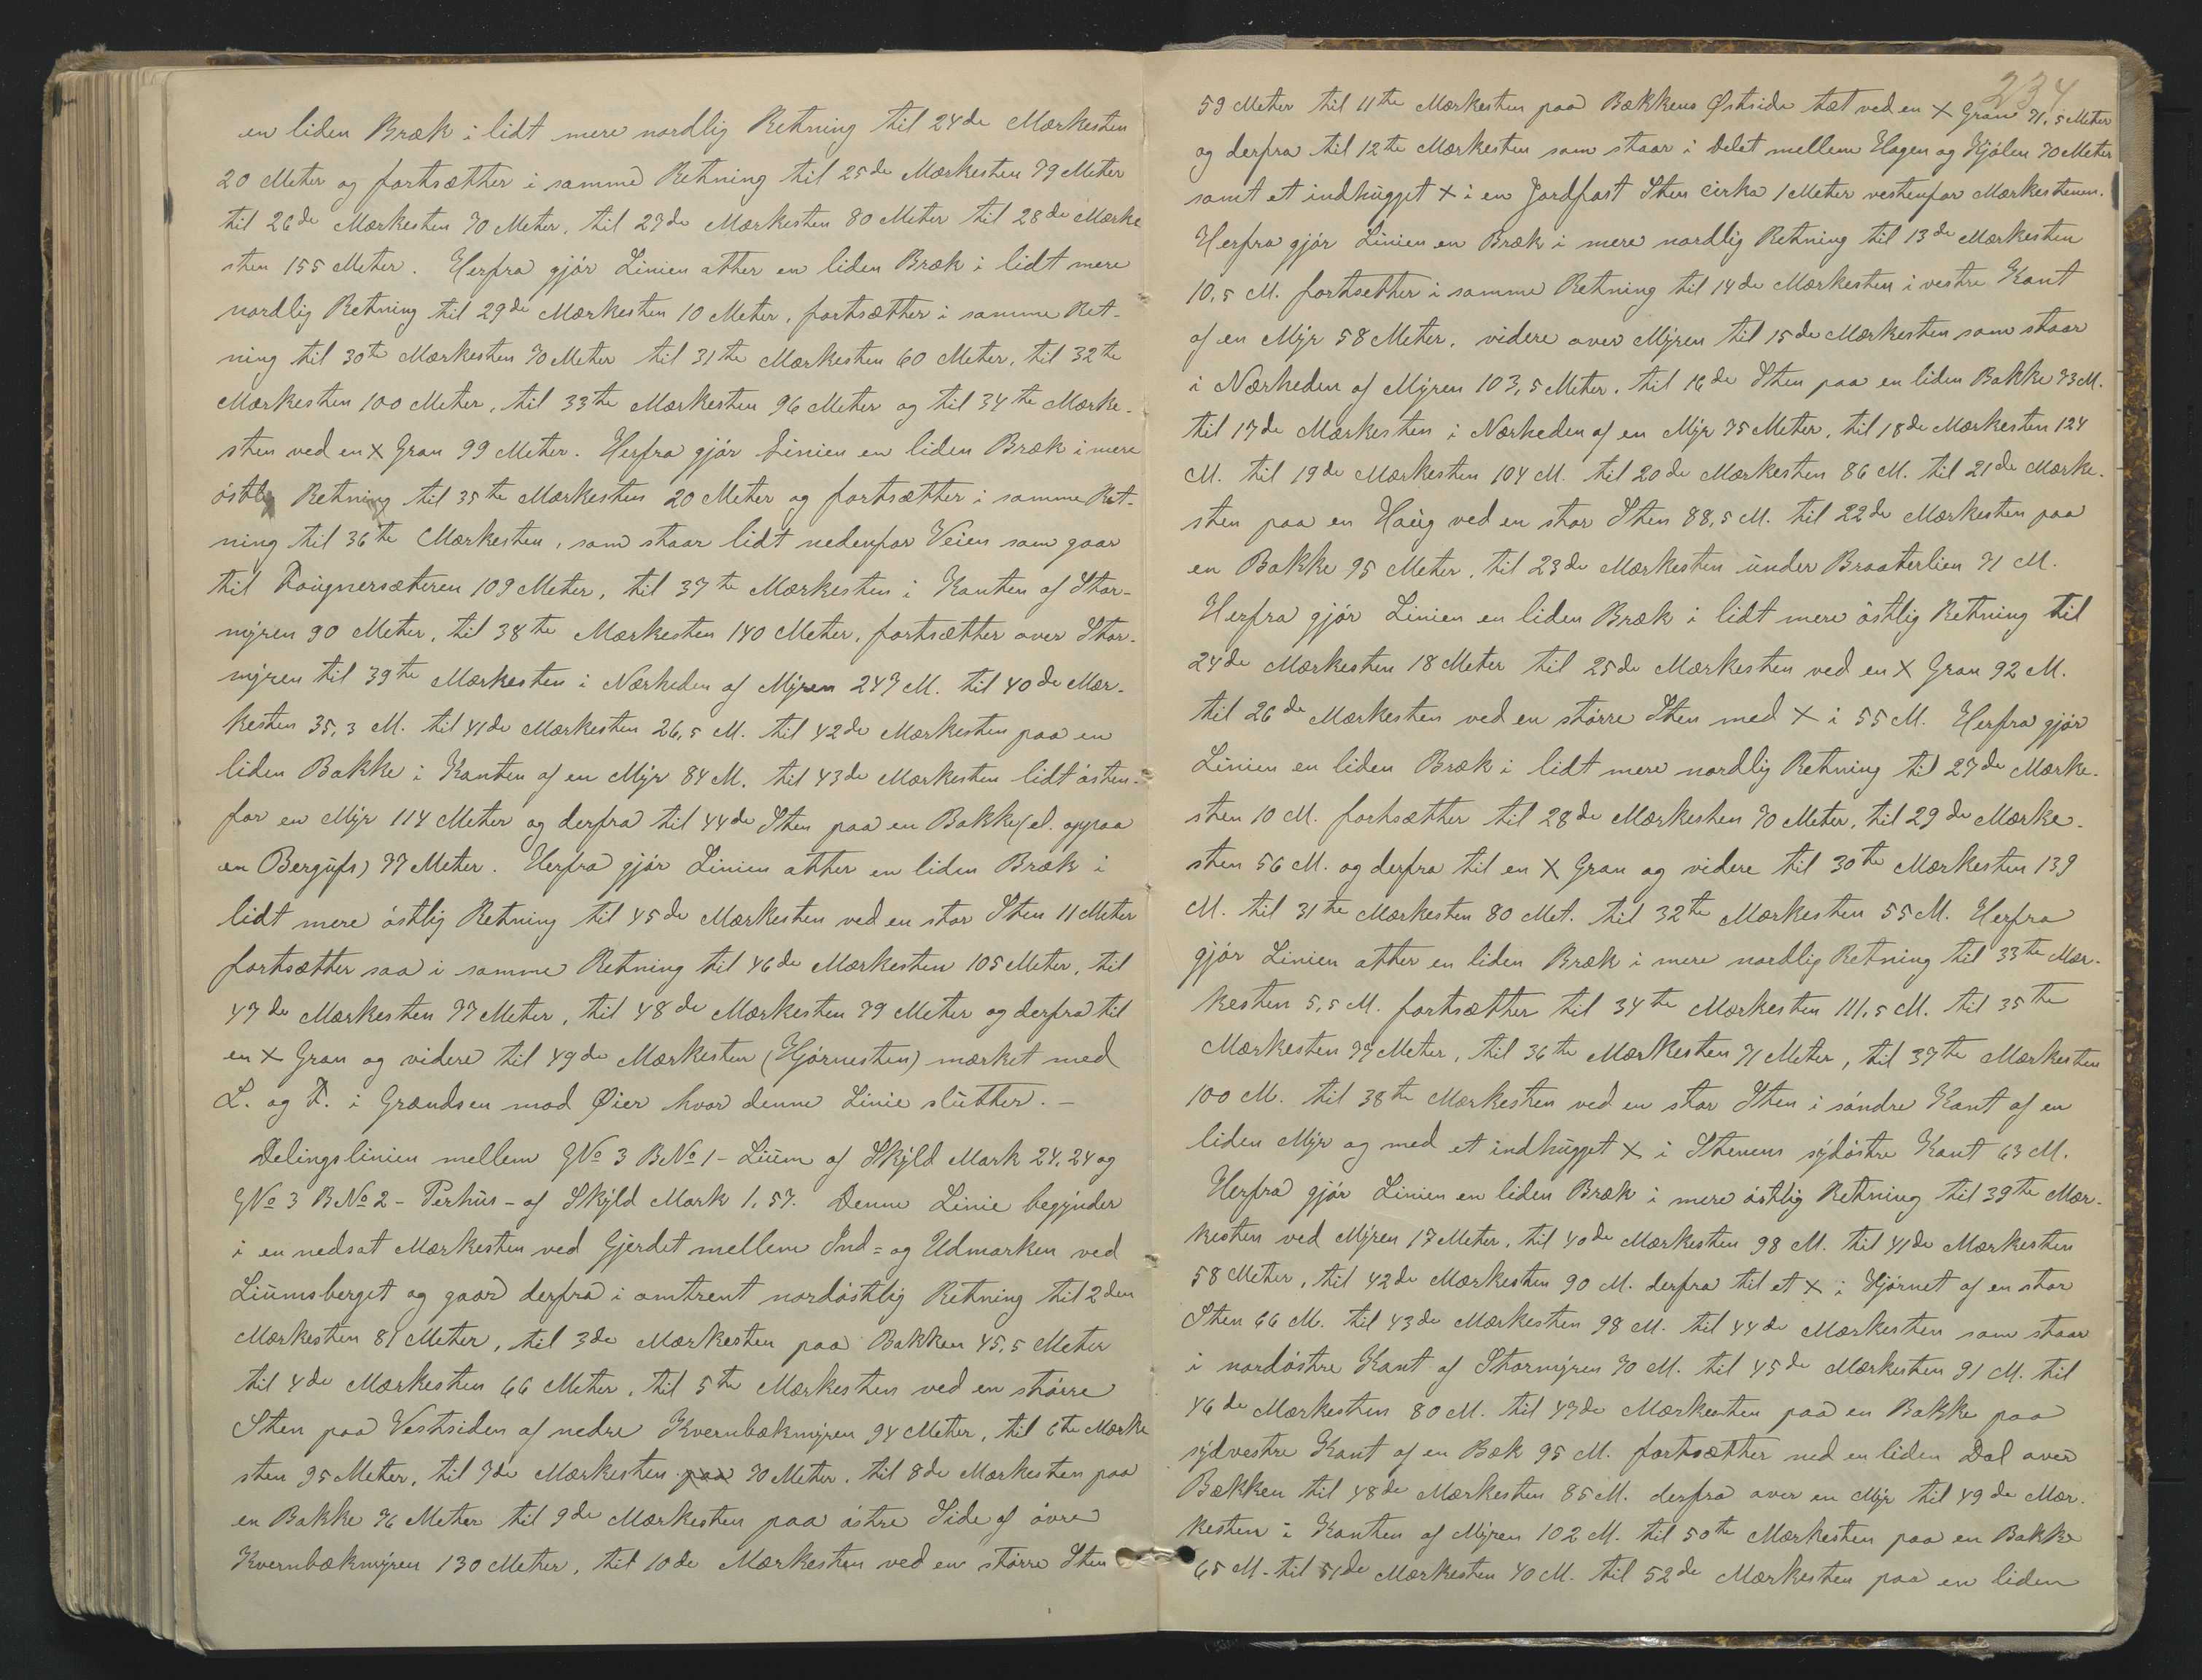 en liden Bræk i lidt mere nordlig Retning til 24de Mærkesten
20 Meter og fortsætter i samme Retning til 25de Mærkesten 79 Meter
til 26de Mærkesten 70 Meter, til 27de Mærkesten 80 Meter til 28de Mærke
sten 155 Meter. Herfra gjör Linien atter en liden Bræk i lidt mere
nordlig Retning til 29de Mærkesten 10 Meter, fortsætter i samme Ret-
ning til 30te Mærkesten 70 Meter til 31te Mærkesten 60 Meter, til 32te
Mærkesten 100 Meter, til 33te Mærkesten 96 Meter og til 34te Mærke-
sten ved en X Gran 99 Meter. Herfra gjör Linien en liden Bræk i mere
östlig Retning til 35te Mærkesten 20 Meter og fortsætter i samme Ret-
ning til 36te Mærkesten, som staar lidt nedenfor Veien som gaar
til Fougnersæteren 109 Meter, til 37te Mærkesten i Kanten af Stor-
myren 90 Meter, til 38te Mærkesten 140 Meter, fortsætter over Stor-
myren til 39te Mærkesten i Nærheden af Myren 247 M. til 40de Mær-
kesten 35,3 M. til 41de Mærkesten 26,5 M. til 42de Mærkesten paa en
liden Bakke i Kanten af en Myr 84 M. til 43de Mærkesten lidt östen-
for en Myr 114 Meter og derfra til 44de Sten paa en Bakke (el. oppaa
en Bergufs) 77 Meter. Herfra gjör Linien atter en liden Bræk i
lidt mere östlig Retning til 45de Mærkesten ved en stor Sten 11 Meter
fortsætter saa i samme Retning til 46de Mærkesten 105 Meter, til
47de Mærkesten 77 Meter, til 48de Mærkesten 79 Meter og derfra til
en X Gran og videre til 49de Mærkesten (Hjörnesten) mærket med
L. og F. i Grændsen mod Øier hvor denne Linie slutter. -
Delingslinien mellem GNo 3 BNo 1 - Liüm af Skyld Mark 24,24 og
GNo 3 BNo 2 - Perhus - af Skyld Mark 1,57. Denne Linie begynder
i en nedsat Mærkesten ved Gjerdet mellem Ind= og Udmarken ved
Liümsberget og gaar derfra i omtrent nordöstlig Retning til 2den
Mærkesten 81 Meter, til 3de Mærkesten paa Bakken 45,5 Meter
til 4de Mærkesten 66 Meter, til 5te Mærkesten ved en större
Sten paa Vestsiden af nedre Kvernbækmyren 94 Meter, til 6te Mærke
sten 95 Meter, til 7de Mærkesten paa 70 Meter, til 8de Mærkesten paa
en Bakke 76 Meter til 9de Mærkesten paa östre Side af övre
Kvernbækmyren 130 Meter, til 10de Mærkesten ved en större Sten
234
59 Meter til 11te Mærkesten paa Bækkens Østside tæt ved en X Gran 71,5 Meter
og derfra til 12te Mærkesten som staar i Delet mellem Hagen og Kjölen 70 Meter
samt et indhugget X i en Jordfast Sten cirka 1 Meter vestenfor Mærkestenen.
Herfra gjör Linien en Bræk i mere nordlig Retning til 13de Mærkesten
10,5 M. fortsetter i samme Retning til 14de Mærkesten i vestre Kant
af en Myr 58 Meter, videre over Myren til 15de Mærkesten som staar
i Nærheden af Myren 103,5 Meter, til 16de Sten paa en liden Bakke 73 M.
til 17de Mærkesten i Nærheden af en Myr 75 Meter, til 18de Mærkesten 124
M. til 19de Mærkesten 104 M. til 20de Mærkesten 86 M. til 21de Mærke-
sten paa en Haug ved en stor Sten 88,5 M. til 22de Mærkesten paa
en Bakke 95 Meter, til 23de Mærkesten under Braaterlien 71 M.
Herfra gjör Linien en liden Bræk i lidt mere östlig Retning til
24de Mærkesten 18 Meter til 25de Mærkesten ved en X Gran 92 M.
til 26de Mærkesten ved en större Sten med X i 55 M. Herfra gjör
Linien en liden Bræk i lidt mere nordlig Retning til 27de Mærke-
sten 10 M. fortsætter til 28de Mærkesten 70 Meter, til 29de Mærke-
sten 56 M. og derfra til en X Gran og videre til 30te Mærkesten 139
M. til 31te Mærkesten 80 Met. til 32te Mærkesten 55 M. Herfra
gjör Linien atter en liden Bræk i mere nordlig Retning til 33te Mær-
kesten 5,5 M. fortsætter til 34te Mærkesten 111,5 M. til 35te
Mærkesten 77 Meter, til 36te Mærkesten 71 Meter, til 37te Mærkesten
100 M. til 38te Mærkesten ved en stor Sten i söndre Kant af en
liden Myr og med et indhugget X i Stenens sydöstre Kant 63 M.
Herfra gjör Linien en liden Bræk i mere östlig Retning til 39te Mær-
kesten ved Myren 17 Meter, til 40de Mærkesten 98 M. til 41de Mærkesten
58 Meter, til 42de Mærkesten 90 M. derfra til et X i Hjörnet af en stor
Sten 66 M. til 43de Mærkesten 98 M. til 44de Mærkesten som staar
i nordöstre Kant af Stormyren 70 M. til 45de Mærkesten 91 M. til
46de Mærkesten 80 M. til 47de Mærkesten paa en Bakke paa
sydvestre Kant af en Bæk 95 M. fortsætter ned en liden Dal over
Bækken til 48de Mærkesten 85 M. derfra over en Myr til 49de Mær-
kesten i Kanten af Myren 102 M. til 50te Mærkesten paa en Bakke
65 M. til 51de Mærkesten 40 M. til 52de Mærkesten paa en liden